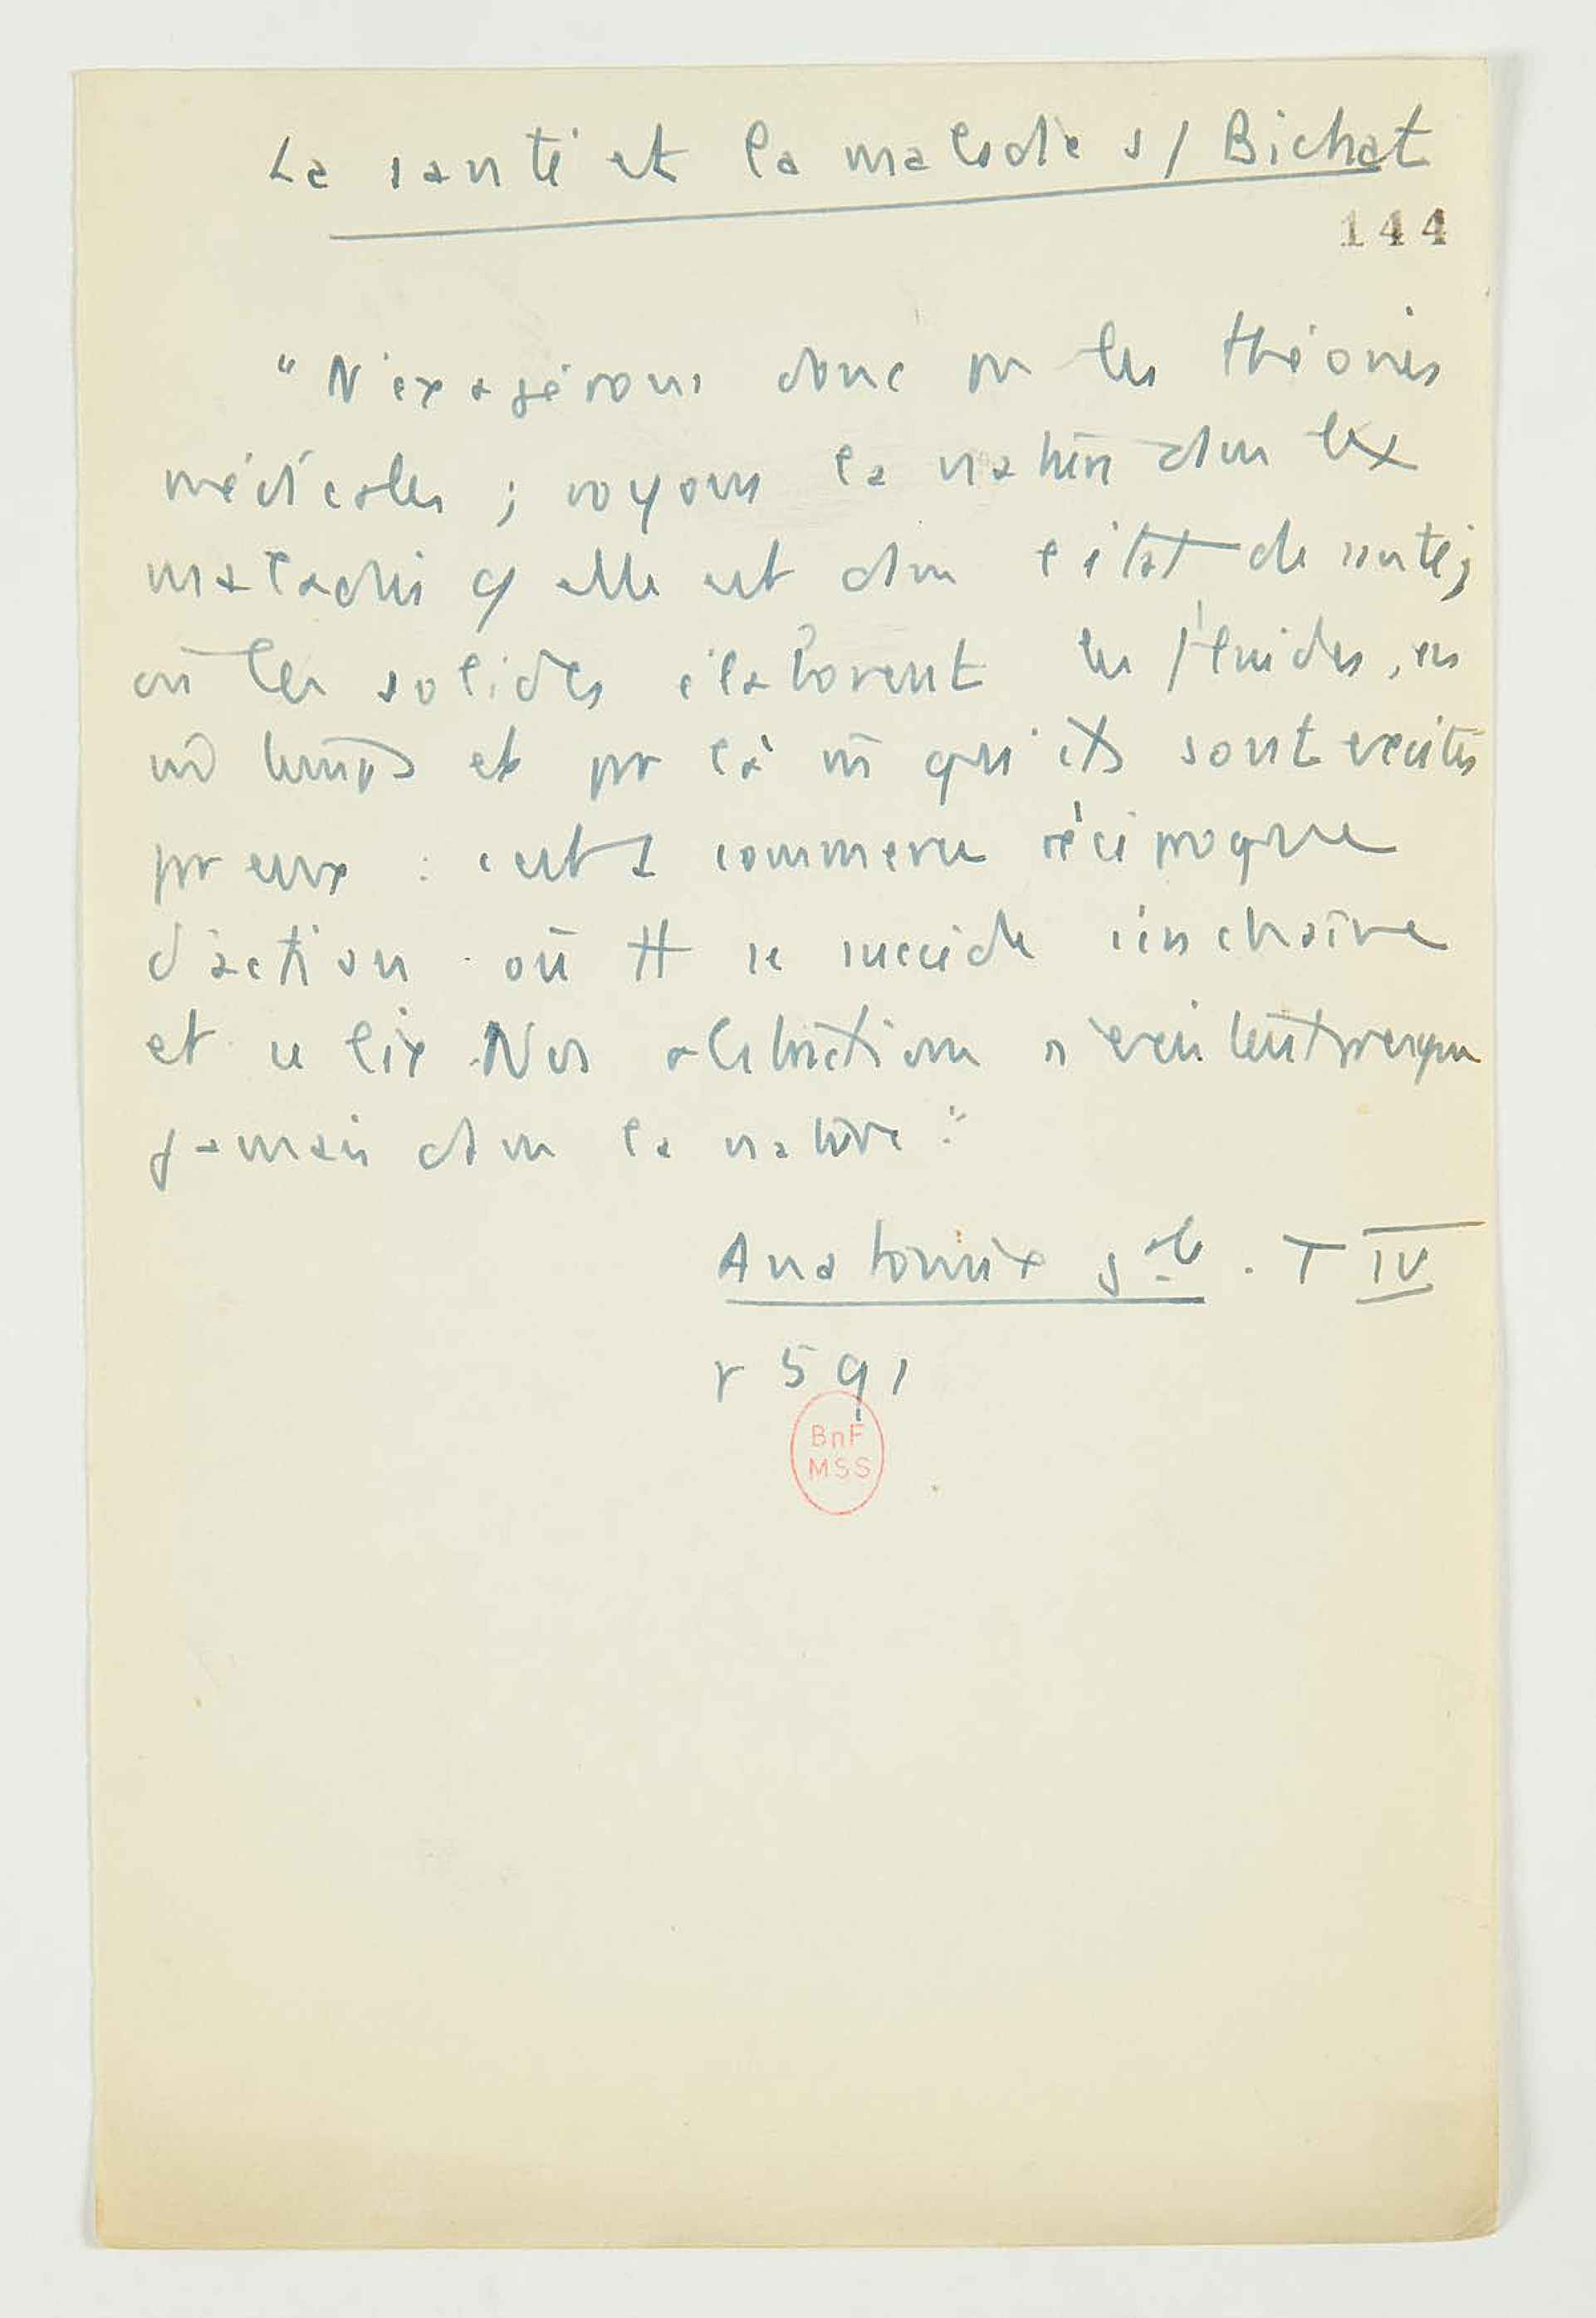 La santé et la maladie s/ Bichat
144
"N'exagérons donc pas les théories
médicales ; voyons la nature dans les
maladies cf elle est dans l'état de santé,
où les solides élaborent les fluides, en
m̂ temps et par là m̄ qu'ils sont excités
par eux : c'est 1 commerce réciproque
d'action où tt se succède s'enchaîne
et se lie. Nos abstractions n'existent presque
jamais dans la nature."
Anatomie gale. T IV
p 591
BnF
MSS